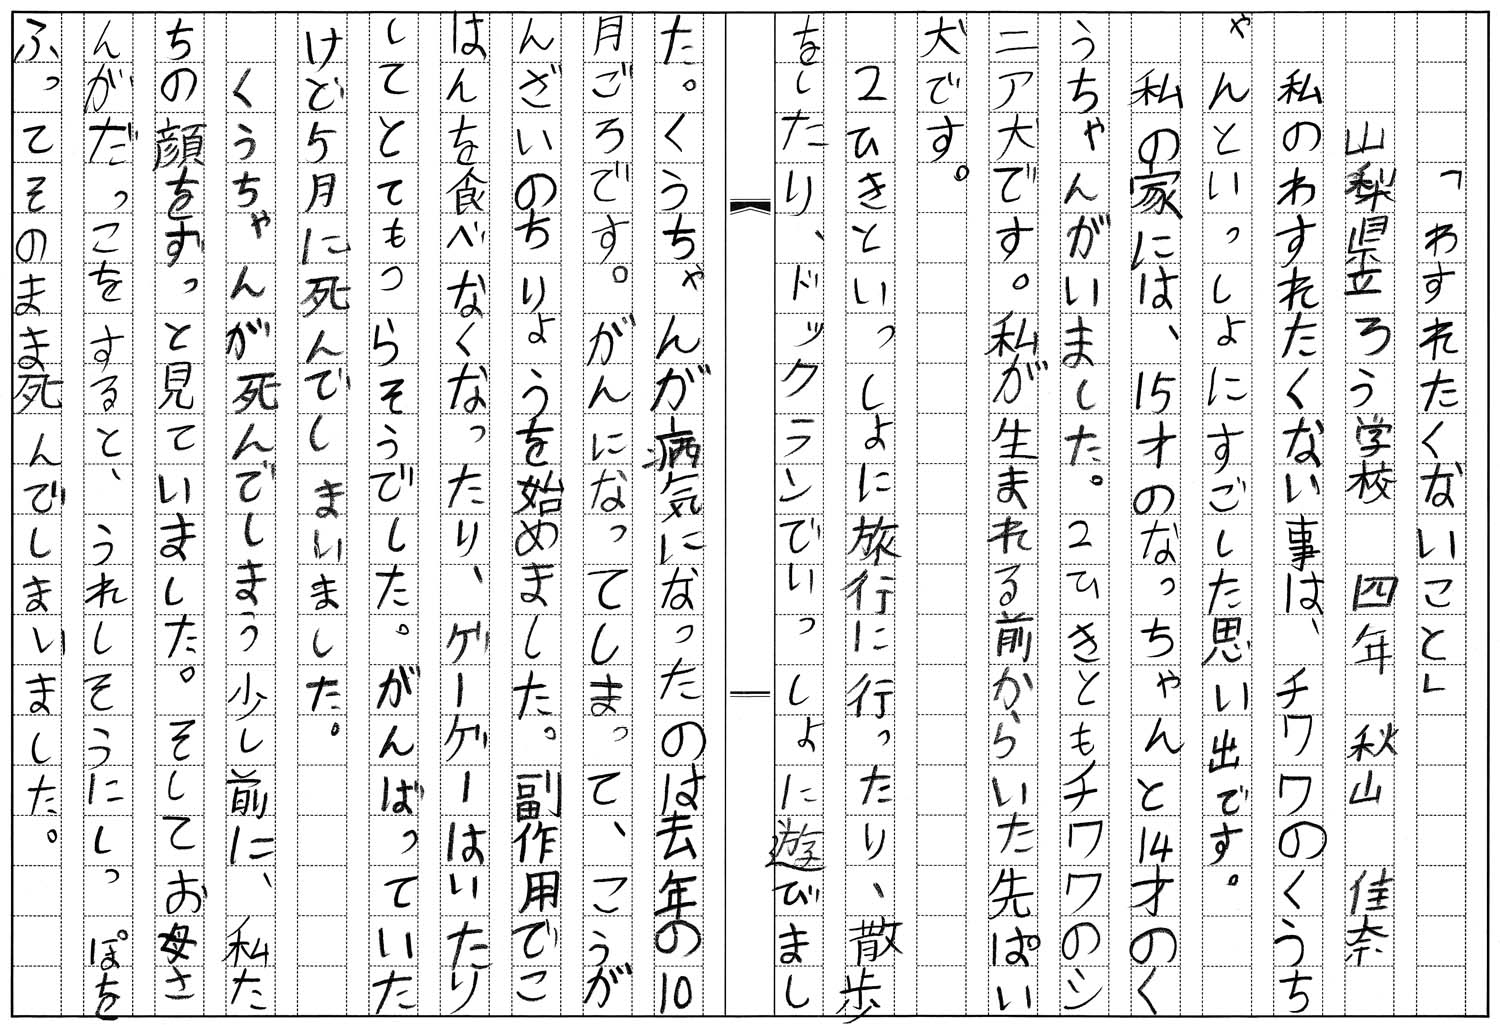 「わすれたくないこと」
山梨県立ろう学校 四年 秋山 佳奈
私のわすれたくない事は、チワワのくうち
ゃんといっしょにすごした思い出です。
私の家には、15才のなっちゃんと14才のく
うちゃんがいました。2ひきともチワワのシ
ニア犬です。私が生まれる前からいた先ぱい
犬です。
2ひきといっしょに旅行に行ったり、散歩
をしたり、ドックランでいっしょに遊びまし
た。くうちゃんが病気になったのは去年の10
月ごろです。がんになってしまって、こうが
んざいのちりょうを始めました。副作用でご
はんを食べなくなったり、ゲーゲーはいたり
してとてもつらそうでした。がんばっていた
けど5月に死んでしまいました。
くうちゃんが死んでしまう少し前に、私た
ちの顔をずっと見ていました。そしてお母さ
んがだっこをすると、うれしそうにしっぽを
ふってそのまま死んでしまいました。